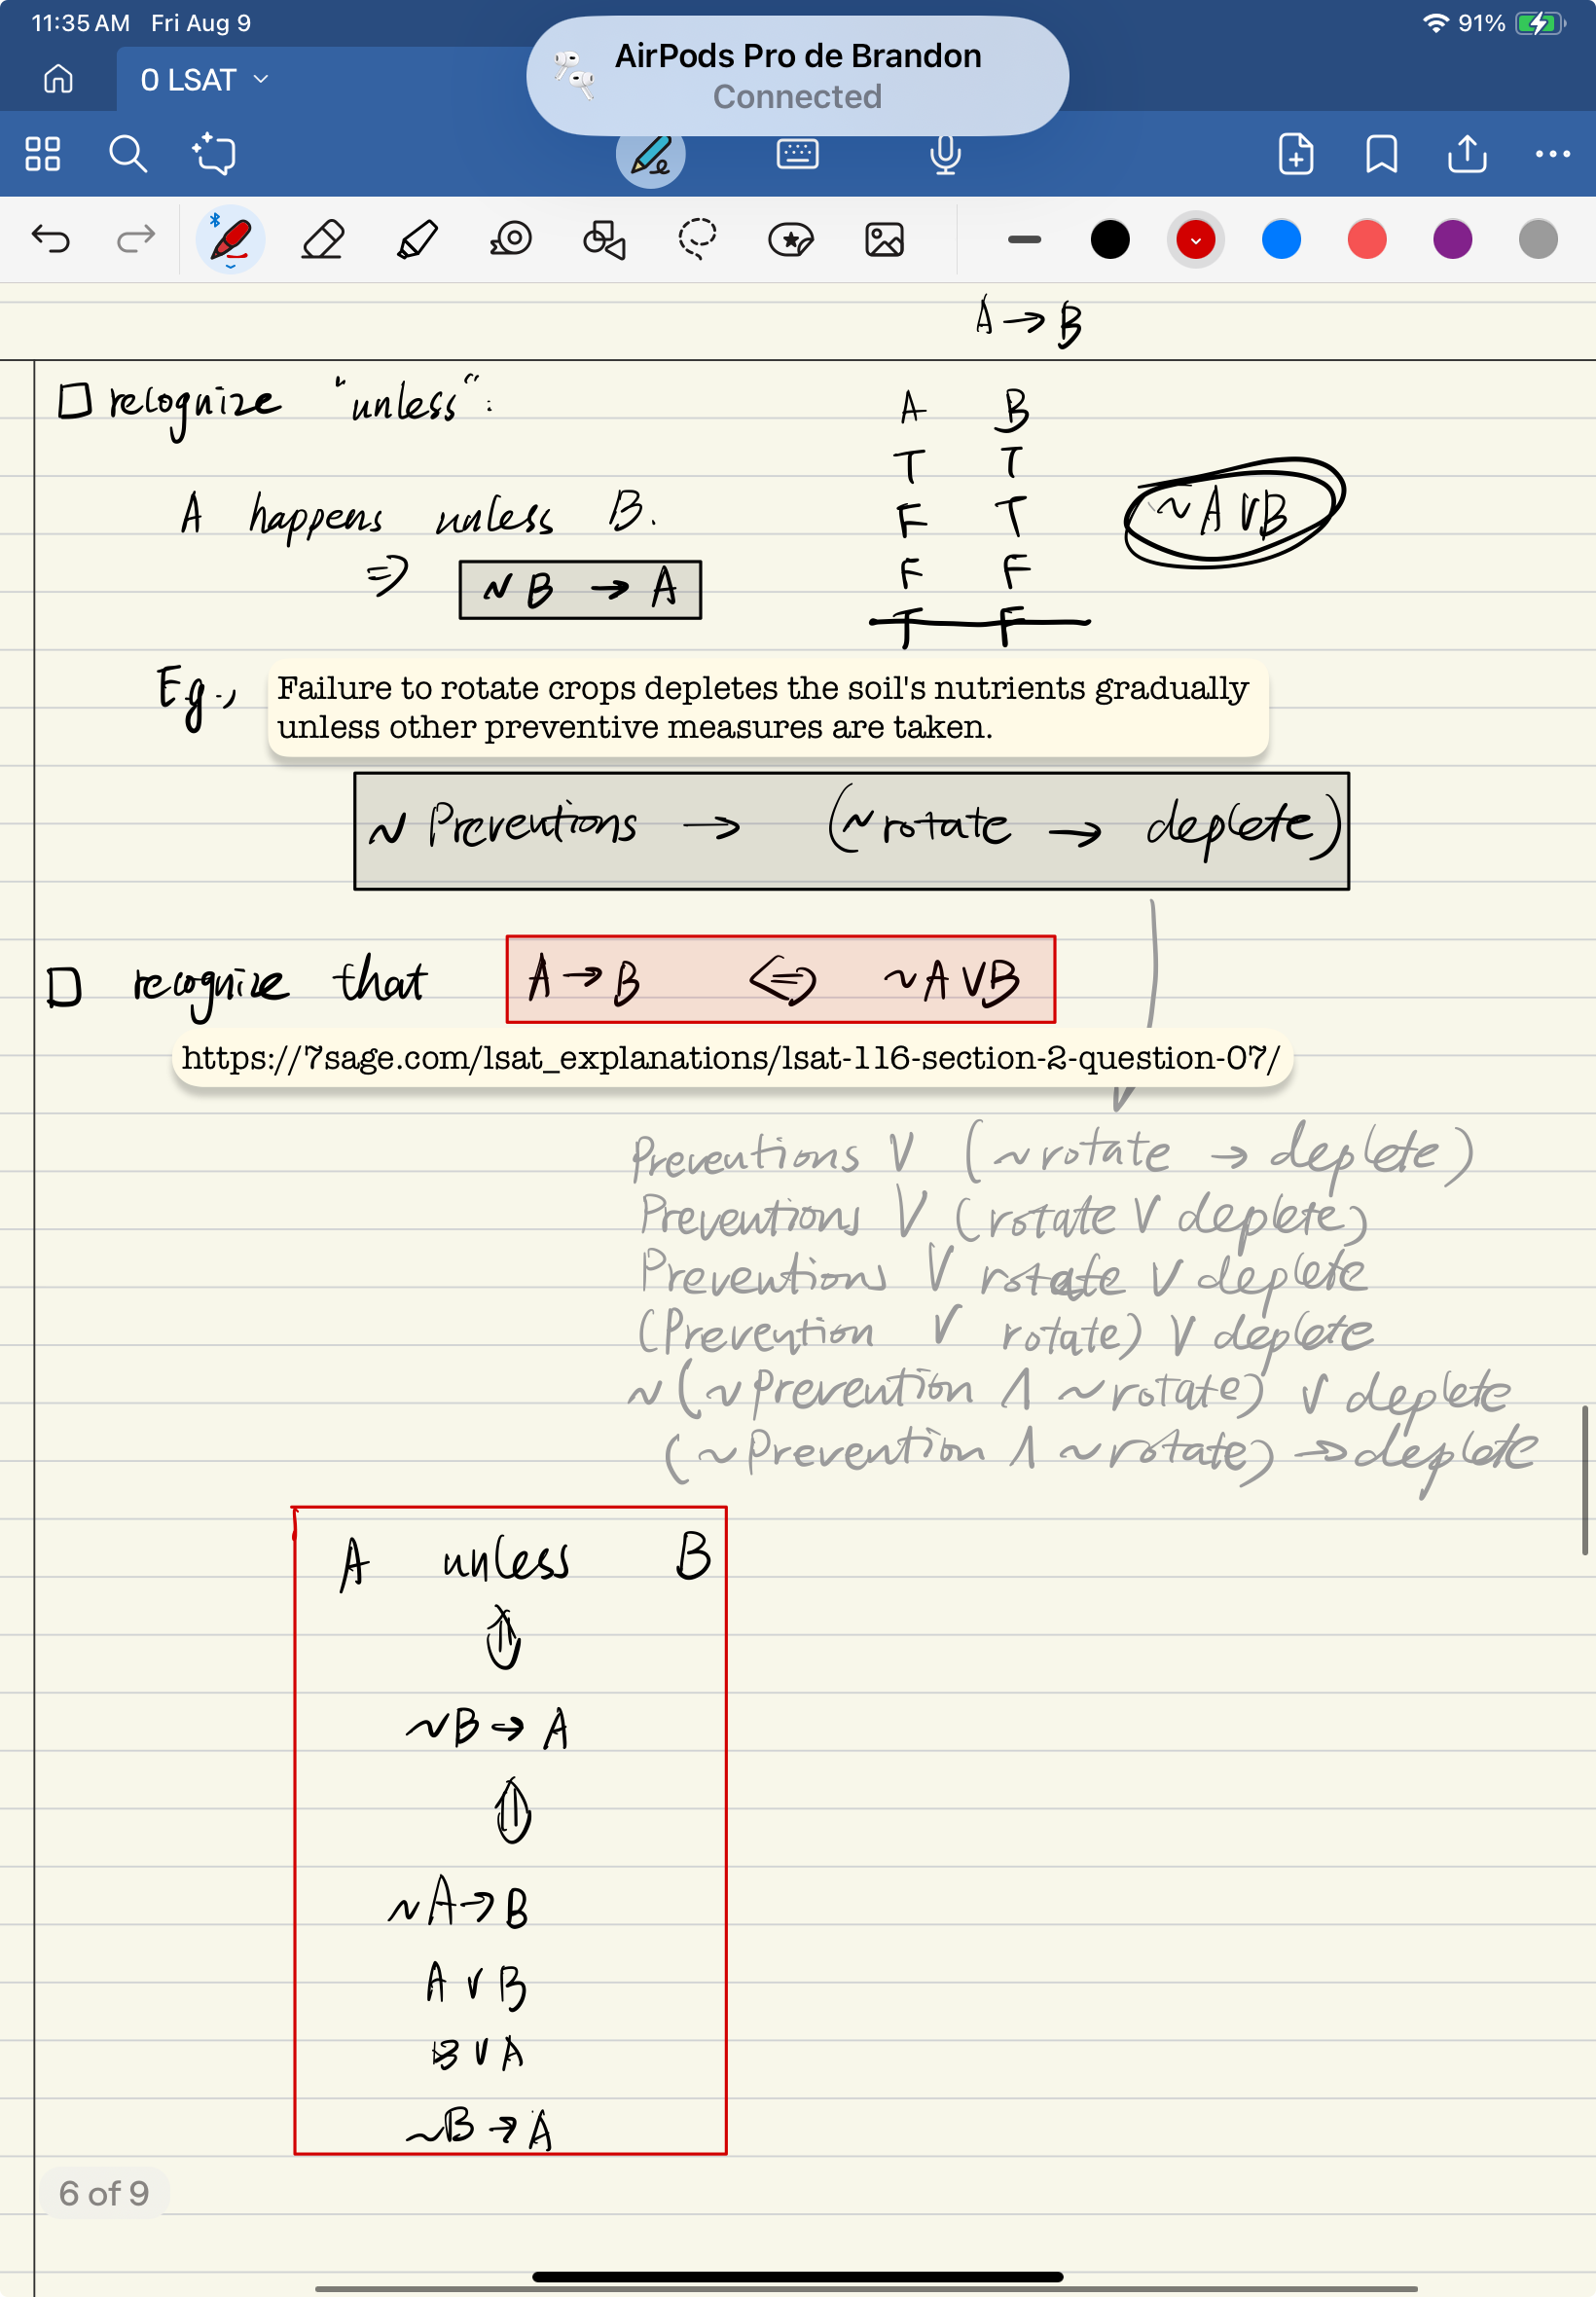 11:35 AM Fri Aug 9
91%
AirPods Pro de Brandon
Connected
0 LSAT
A → B
□ recognize "unless":
A B
T T
F T
F F
T F
~A ∨ B
A happens unless B.
⇒ ~B → A
Eg.,
Failure to rotate crops depletes the soil's nutrients gradually
unless other preventive measures are taken.
~Preventions → (~rotate → deplete)
□ recognize that A → B ⇔ ~A ∨ B
https://7sage.com/lsat_explanations/lsat-116-section-2-question-07/
Preventions ∨ (~rotate → deplete)
Preventions ∨ (rotate ∨ deplete)
Preventions ∨ rotate ∨ deplete
(Prevention ∨ rotate) ∨ deplete
~(~Prevention ∧ ~rotate) ∨ deplete
(~Prevention ∧ ~rotate) → deplete
A unless B
⇕
~B → A
⇕
~A → B
A ∨ B
B ∨ A
~B → A
6 of 9